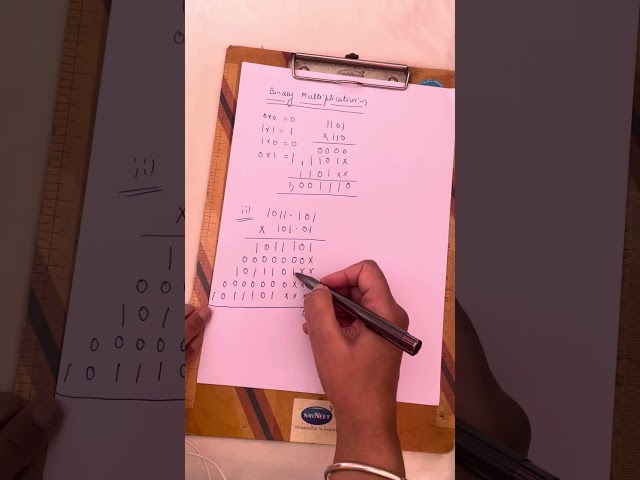 Binary Multiplication:→
0x0 = 0
1x1 = 1
1x0 = 0
0x1 = 1
1101
x 110
0000
1101x
1101xx
1,001110
ii) 1011.101
x 101.01
1011101
0000000x
1011101xx
0000000xxx
1011101xxx
NAVNEET